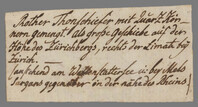 Rother Thonschiefer mit Quarz Kör-
nern gemengt als große Geschiebe auf der
Höhe des Zürichbergs, rechts der Limath bey
Zürich.
(anstehend am Wallenstattersee u. bey Mels
Sargans gegenüber in der nähe des Rheins)